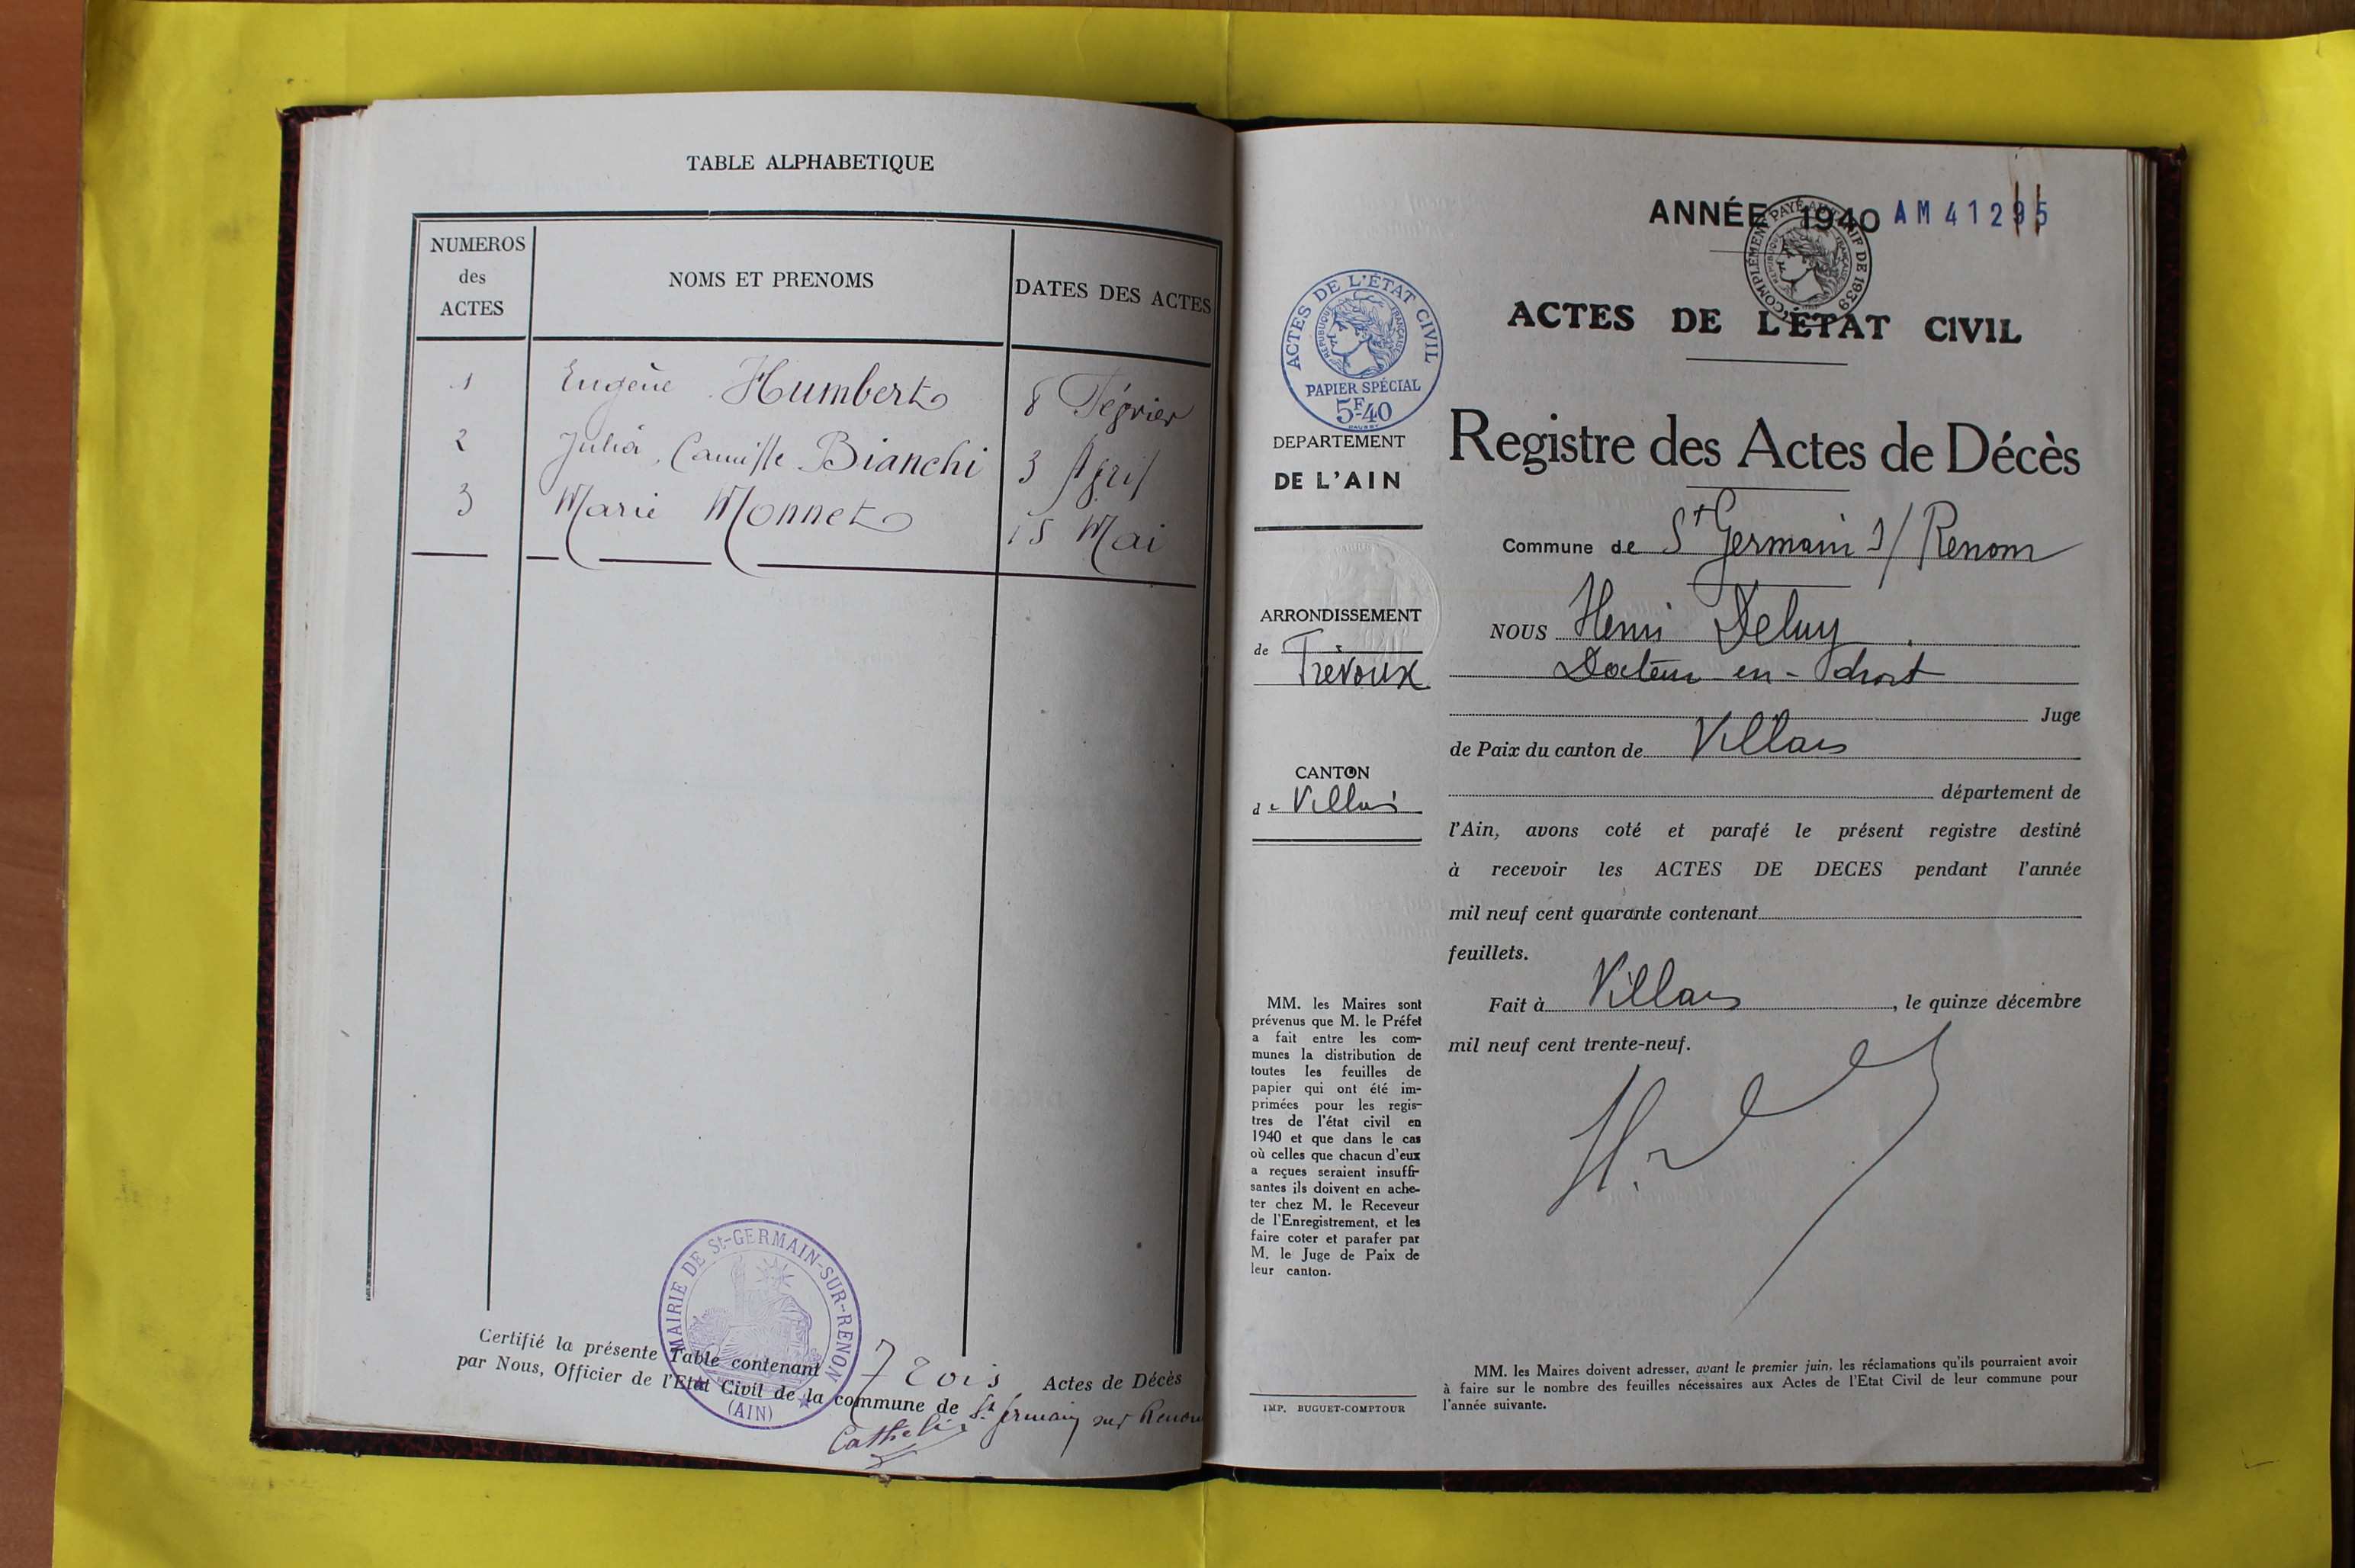 TABLE ALPHABETIQUE
NUMEROS
des
ACTES
NOMS ET PRENOMS
DATES DES ACTES
1 Eugène Humbert 8 Février
2 Julia, Camille Bianchi 3 Avril
3 Marie Monnet 15 Mai
MAIRIE DE St-GERMAIN-SUR-RENON
(AIN)
Certifié la présente Table contenant Trois Actes de Décès
par Nous, Officier de l'Etat Civil de la commune de St Germain sur Renon
ANNÉE 1940 AM 41295
COMPLÉMENT PAYÉ AU TARIF DE 1939
RÉPUBLIQUE FRANÇAISE
ACTES DE L'ÉTAT CIVIL
ACTES DE L'ÉTAT CIVIL
RÉPUBLIQUE FRANÇAISE
PAPIER SPÉCIAL
5F.40
DEPARTEMENT
DE L'AIN
ARRONDISSEMENT
de Trévoux
CANTON
de Villars
MM. les Maires sont
prévenus que M. le Préfet
a fait entre les com-
munes la distribution de
toutes les feuilles de
papier qui ont été im-
primées pour les regis-
tres de l'état civil en
1940 et que dans le cas
où celles que chacun d'eux
a reçues seraient insuffi-
santes ils doivent en ache-
ter chez M. le Receveur
de l'Enregistrement, et les
faire coter et parafer par
M. le Juge de Paix de
leur canton.
IMP. BUGUET-COMPTOUR
Registre des Actes de Décès
Commune de St Germain s/ Renom
NOUS Henri Deluy
Docteur-en-droit
Juge
de Paix du canton de Villars
département de
l'Ain, avons coté et parafé le présent registre destiné
à recevoir les ACTES DE DECES pendant l'année
mil neuf cent quarante contenant
feuillets.
Fait à Villars, le quinze décembre
mil neuf cent trente-neuf.
MM. les Maires doivent adresser, avant le premier juin, les réclamations qu'ils pourraient avoir
à faire sur le nombre des feuilles nécessaires aux Actes de l'Etat Civil de leur commune pour
l'année suivante.